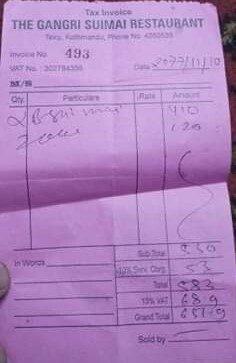 Tax Invoice
THE GANGRI SUIMAI RESTAURANT
Teku, Kathmandu, Phone No. 4253539
Invoice No. 493
VAT No. : 302784356 Date 2077/11/10
M/S
Qty. Particulars Rate Amount
410
120
Sub Total 530
In Words 10% Serv. Chrg. 53
Total 583
13% VAT
Grand Total
Sold by